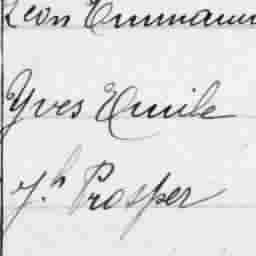 Léon Emmanu
Yves Emile
J.h Prosper